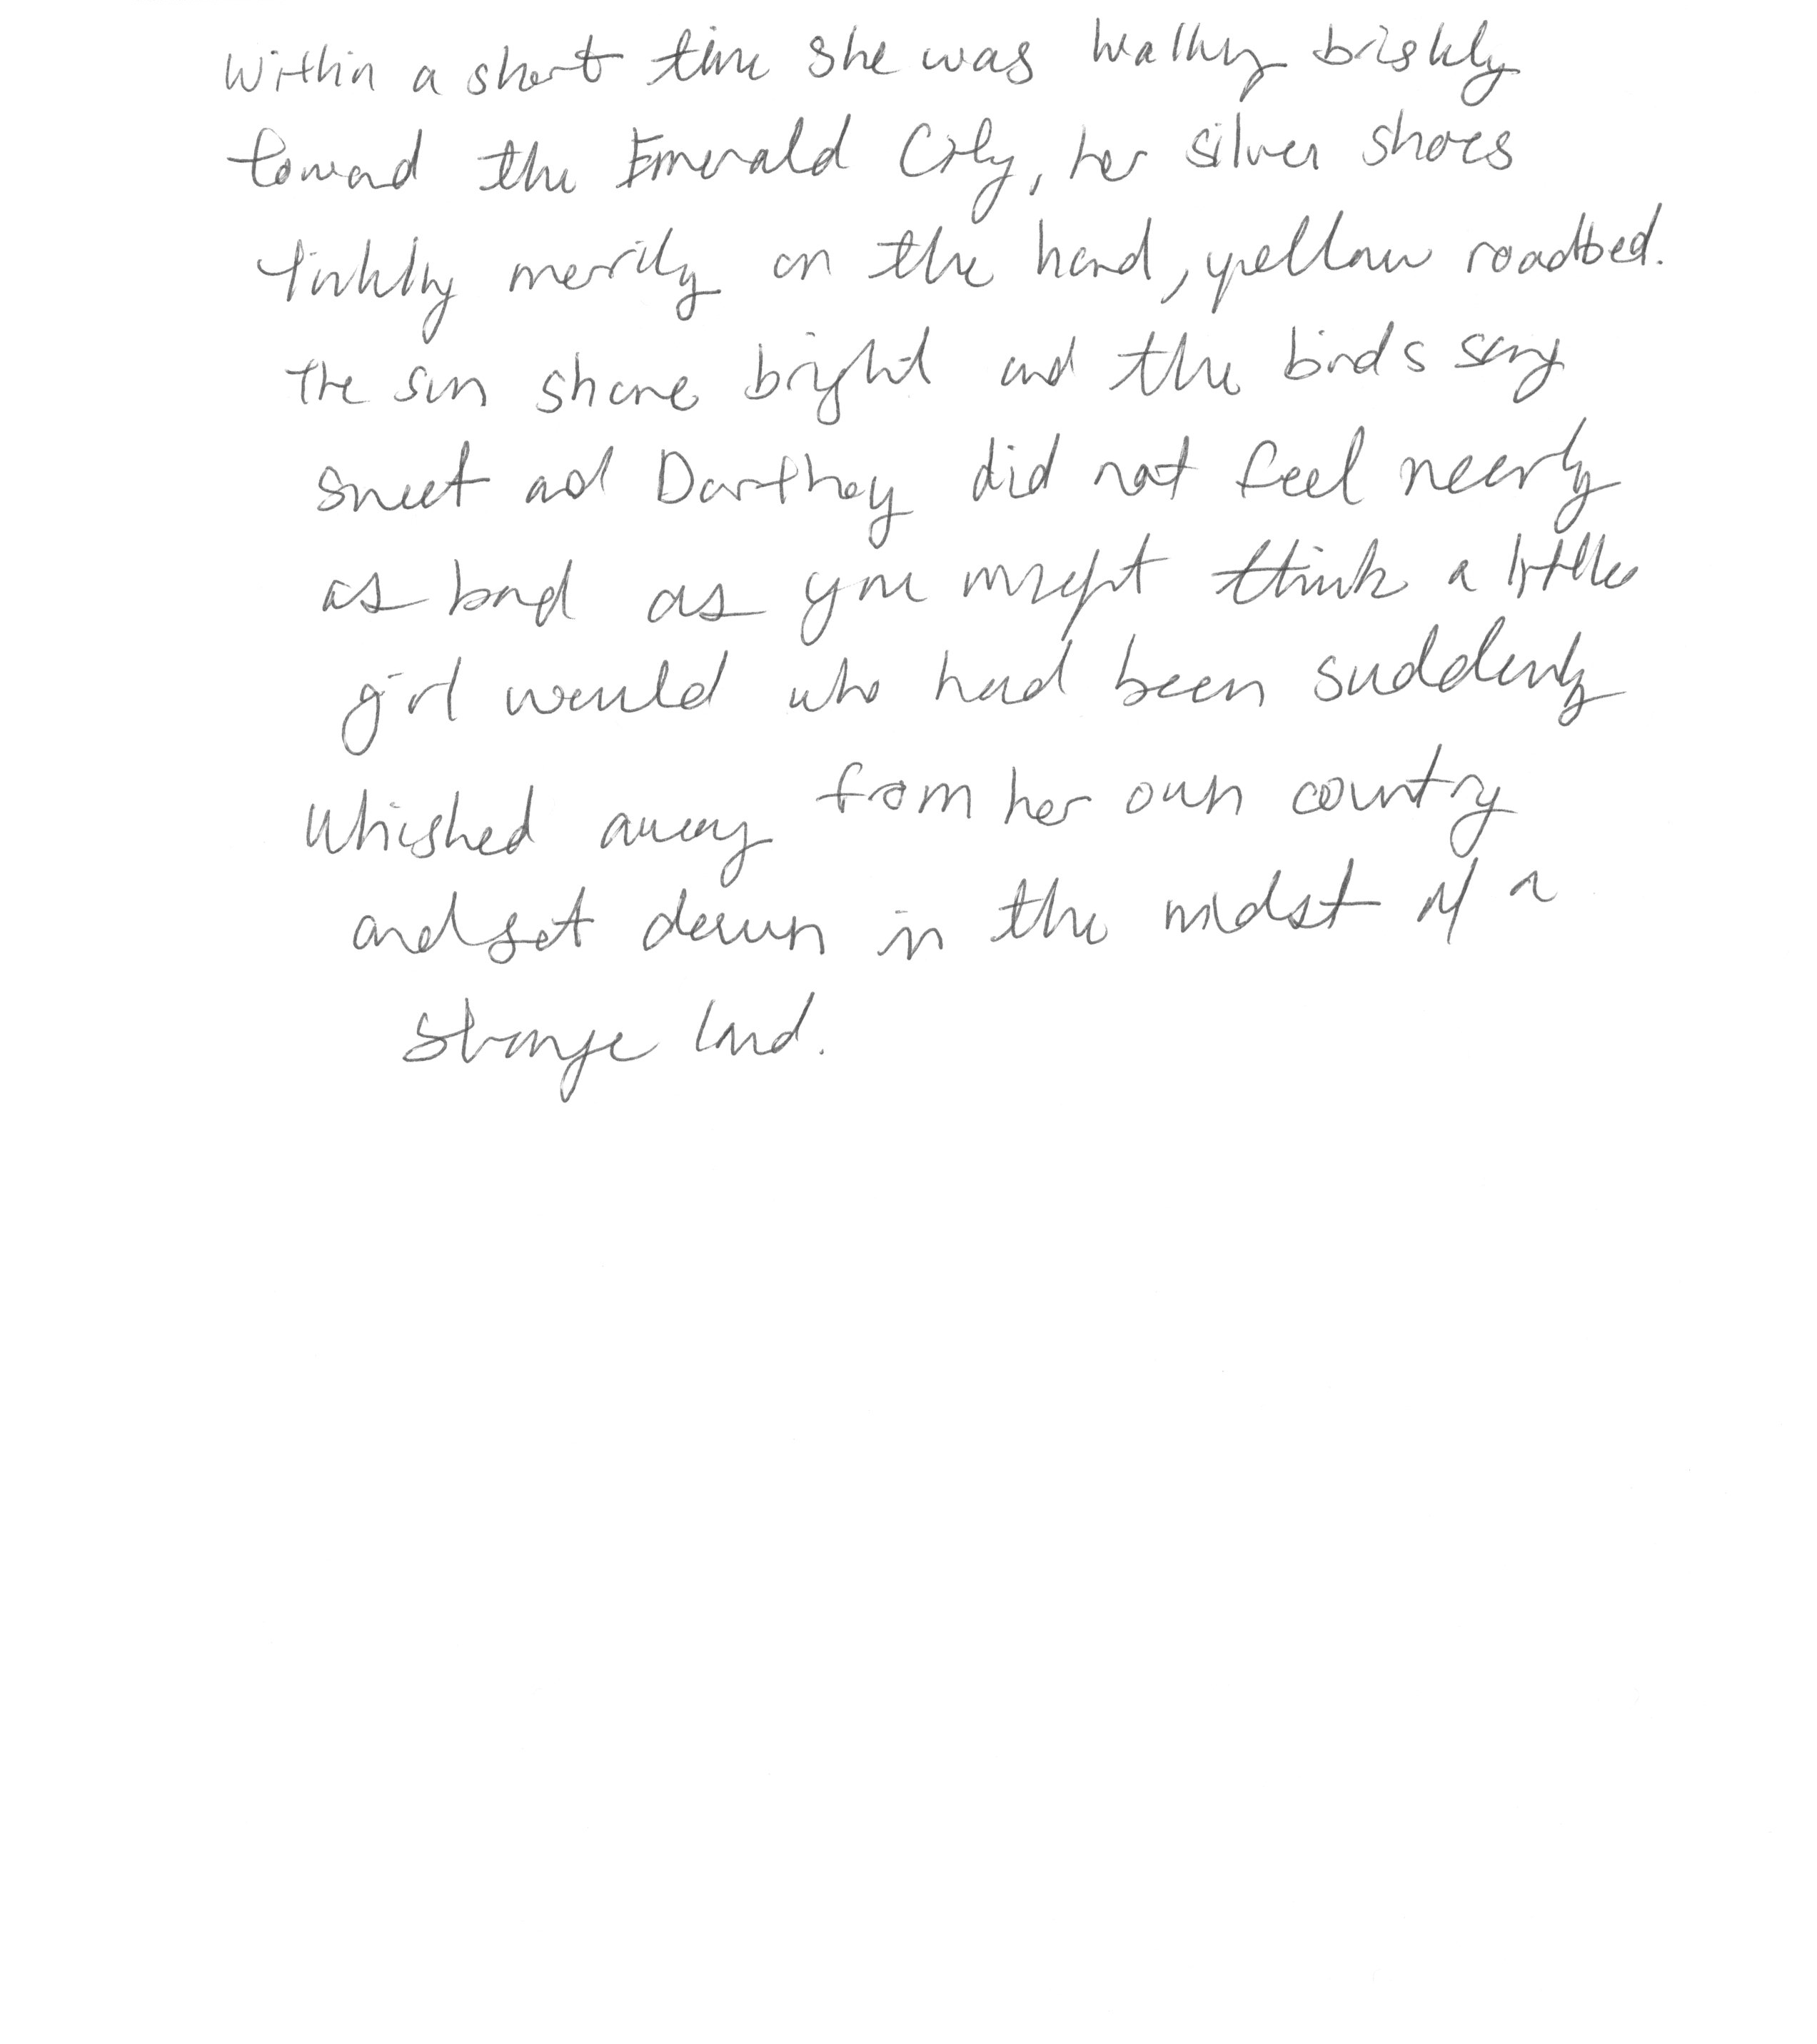 Within a short time she was walking briskly
toward the Emerald City, her silver shoes
tinkling merrily on the hard, yellow roadbed.
The sun shone bright and the birds sang
sweet and Dorthoy did not feel nearly
as bad as you might think a little
girl would who had been suddenly
whisked away from her own country
and set down in the midst of a
strange land.